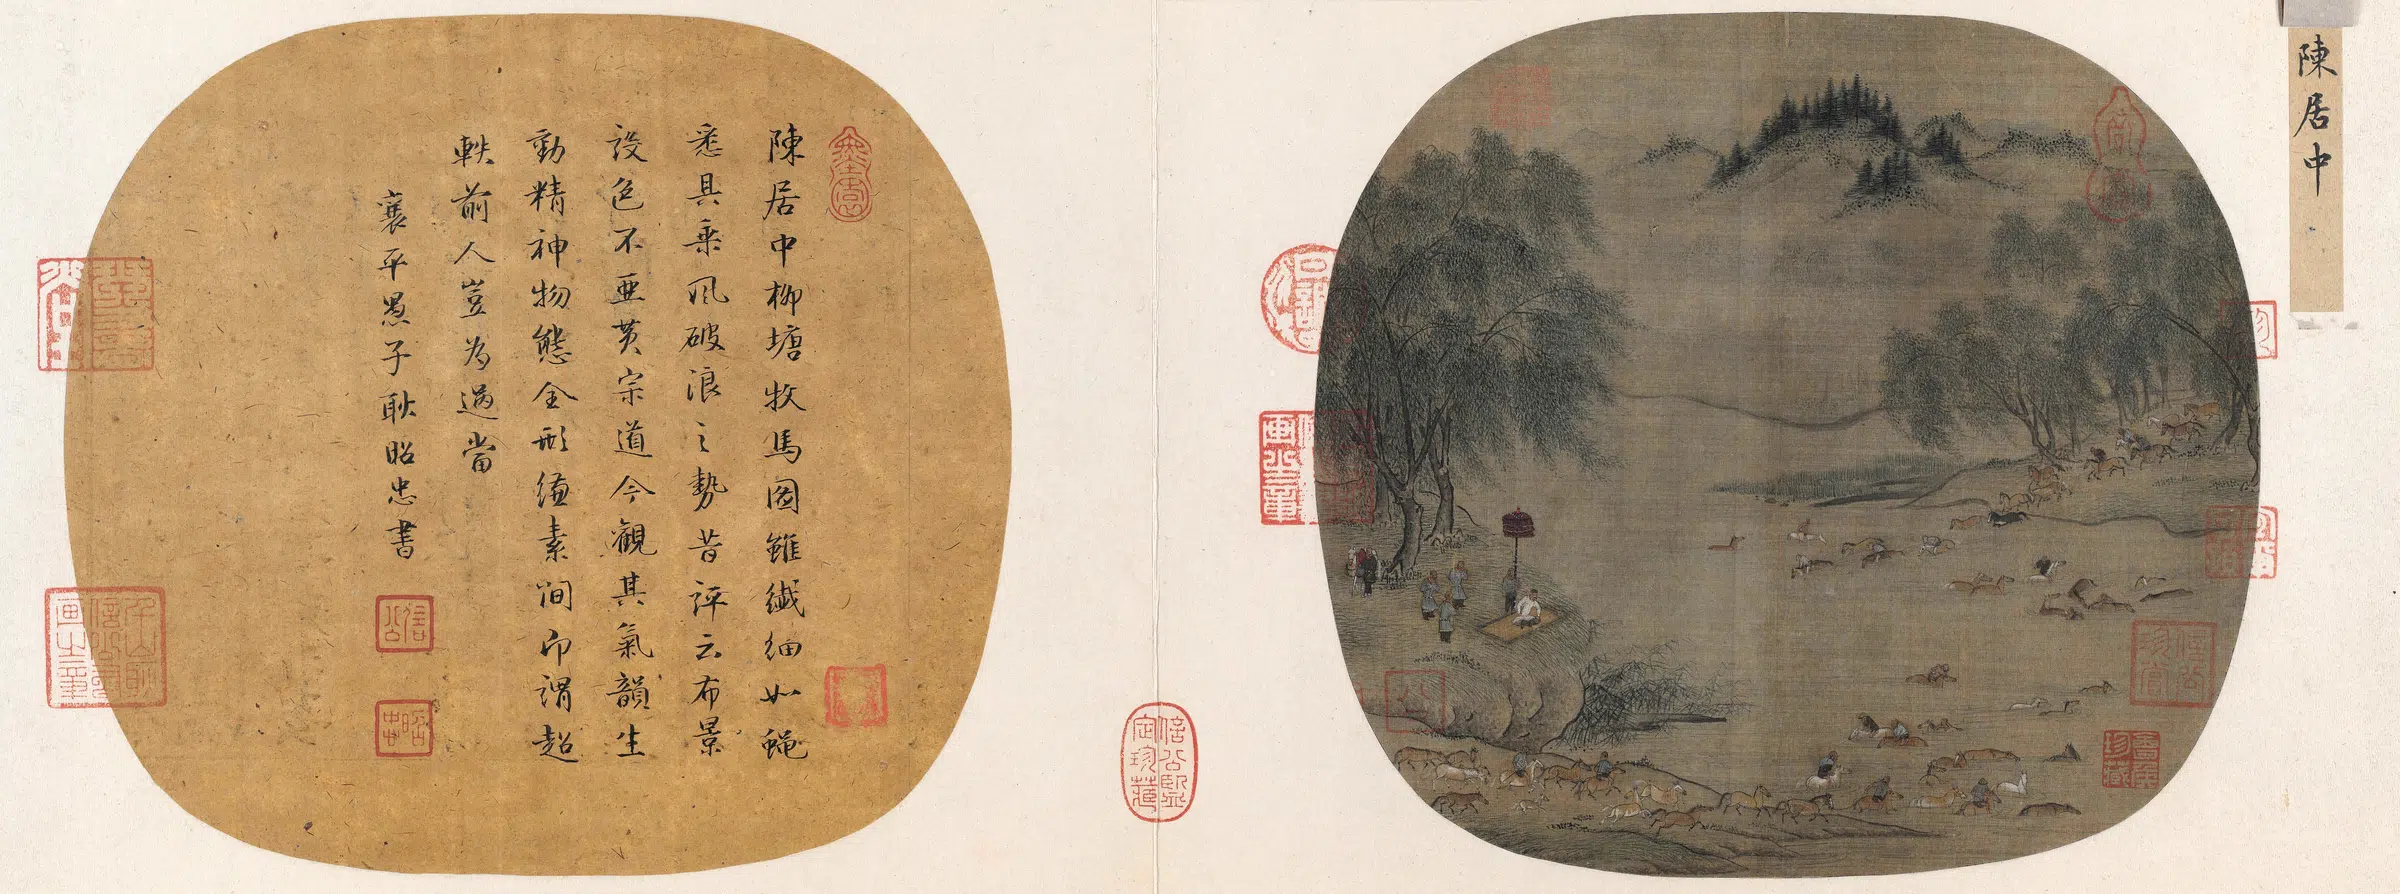 陳居中
陳居中柳塘牧馬圖雖纖細如蠅
悉具乘風破浪之勢昔評云布景
設色不亞黃宗道今觀其氣韻生
動精神物態全形縑素間卬謂超
軼前人豈為過當
襄平愚子耿昭忠書
信公